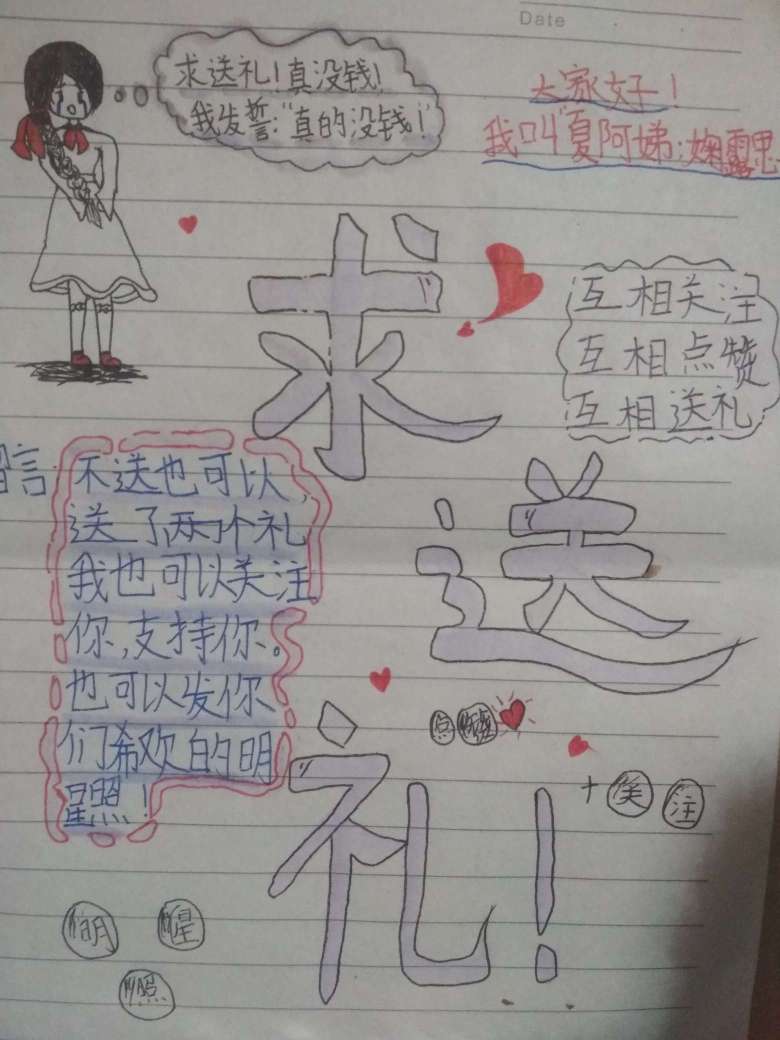 Date
求送礼！真没钱！
我发誓：“真的没钱！”
大家好！
我叫“夏阿娣：婅露思
求
互相关注
互相点赞
互相送礼
送
留言：
不送也可以，
送了两个礼
我也可以关注
你，支持你。
也可以发你
们希欢的明
星照！
点 赞
+ 关 注
礼！
明 星
照